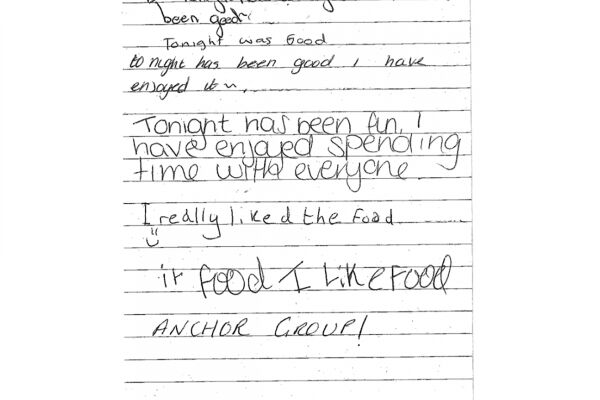 been good
Tonight was Good
tonight has been good i have
enjoyed it
Tonight has been fun, I
have enjoyed spending
time with everyone
I really liked the Food
it food I Like Food
ANCHOR GROUP!